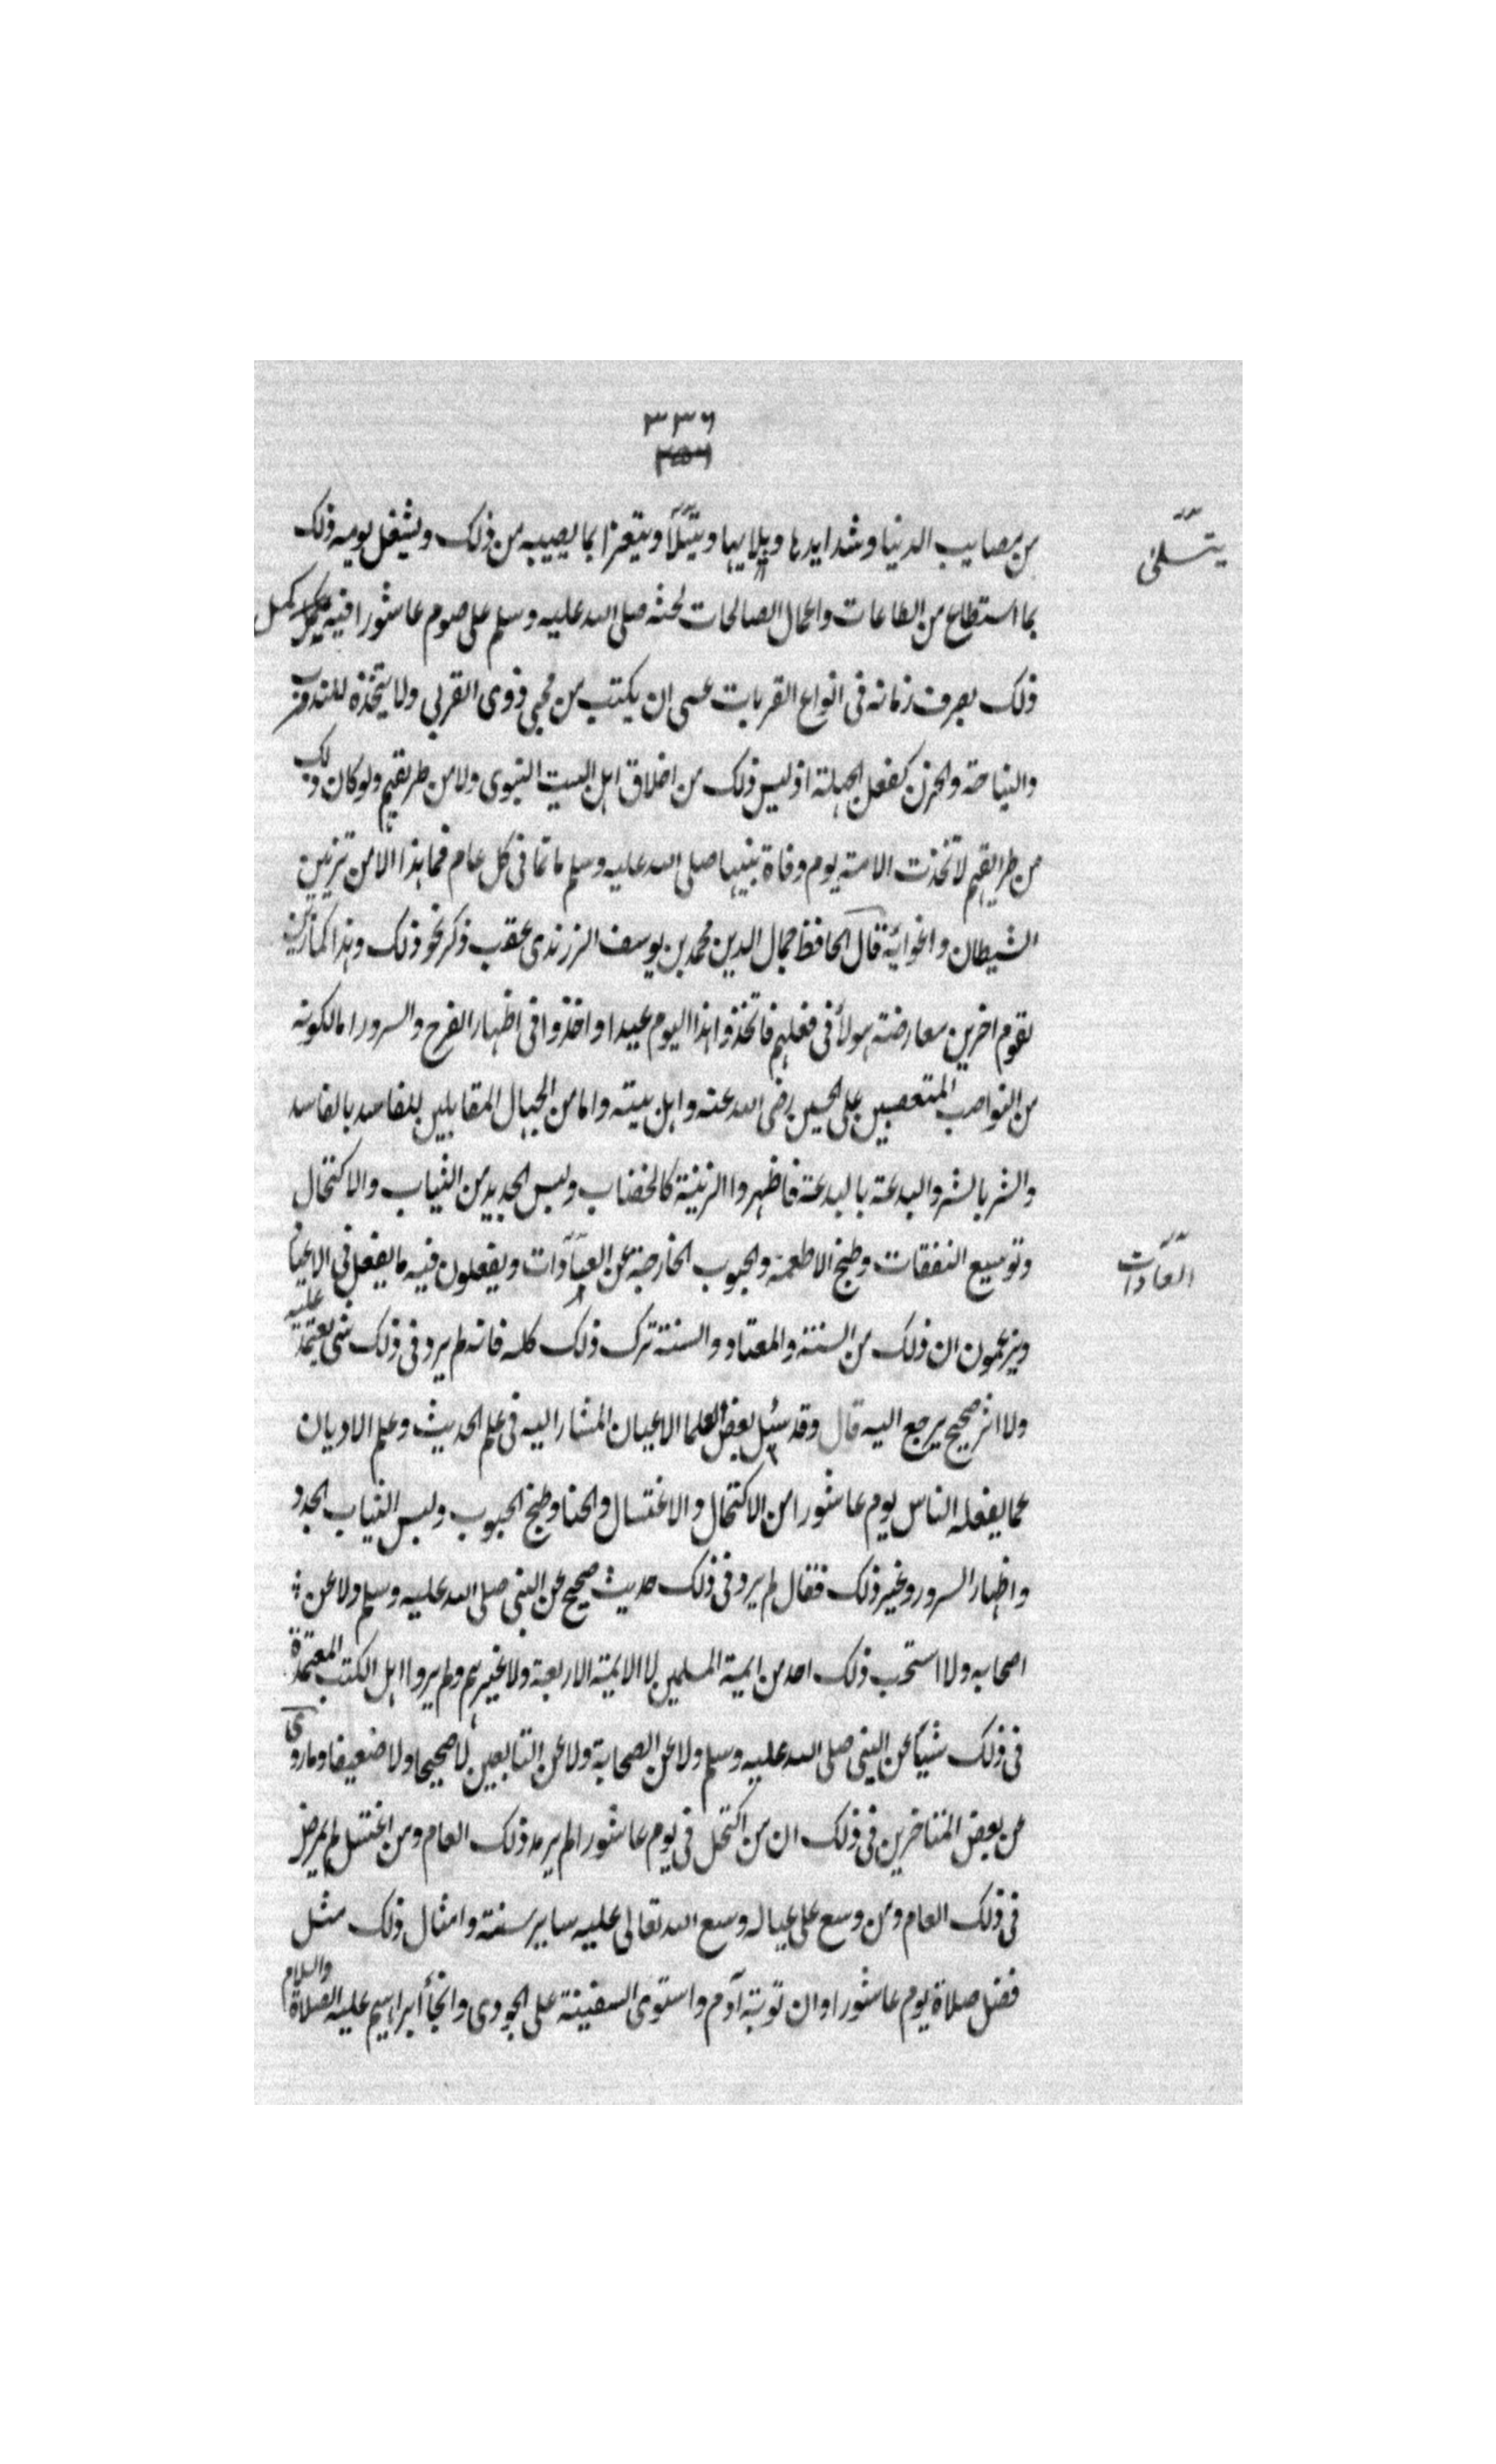 ٣٣٦
من مصايب الدنيا وشدايدها وبلاياها ويتسلا ويتعزا بما يصيبه من ذلك ويشغل يومه ذلك
يتسلى
بما استطاع من الطاعات واعمال الصالحات لحثه صلى الله عليه وسلم على صوم عاشورا فيه
ذلك يصرف زمانه فى انواع القربات عسى ان يكتب من محبى ذوى القربى ولا يتخذه للندب
والنياحة والحزن كفعل الجهلة اذ ليس ذلك من اخلاق اهل البيت النبوى ولا من طريقهم ولو كان ذلك
من طرايقهم لاتخذت الامة يوم وفاة نبيها صلى الله عليه وسلم ماتما فى كل عام فما هذا الا من تزيين
الشيطان واغوائه قال الحافظ جمال الدين محمد بن يوسف الزرندى عقب ذكر نحو ذلك وهذا كما زين
لقوم اخرين معارضة هولأ فى فعلهم فاتخذوا هذا اليوم عيدا واخذوا فى اظهار الفرح والسرور اما لكونه
من النواصب المتعصبين على الحسين رضى الله عنه واهل بيته واما من الجهال المقابلين للفاسد بالفاسد
والشر بالشر والبدعة بالبدعة فاظهروا الزينة كالخضاب ولبس الجديد من الثياب والاكتحال
وتوسيع النفقات وطبخ الاطعمة والحبوب الخارجة عن العادات ويفعلون فيه ما يفعل فى الاعياد
العادات
ويزعمون ان ذلك من السنة والمعتاد والسنة ترك ذلك كله فانه لم يرد فى ذلك شى يعتمد عليه
ولا اثر صحيح يرجع اليه قال وقد سئل بعض العلما الاعيان المشار اليه فى علم الحديث وعلم الاديان
عما يفعله الناس يوم عاشورا من الاكتحال والاغتسال والحنا وطبخ الحبوب ولبس الثياب الجدد
واظهار السرور وغير ذلك فقال لم يرد فى ذلك حديث صحيح عن النبى صلى الله عليه وسلم ولا عن
اصحابه ولا استحب ذلك احد من ايمة المسلمين لا الايمة الاربعة ولا غيرهم ولم يروا اهل الكتب المعتمدة
فى ذلك شيأ عن النبى صلى الله عليه وسلم ولا عن الصحابة ولا عن التابعين لا صحيحا ولا ضعيفا وما روى
من بعض المتاخرين فى ذلك ان من اكتحل فى يوم عاشورا لم يرمد ذلك العام ومن اغتسل لم يمرض
فى ذلك العام ومن وسع على عياله وسع الله تعالى عليه ساير سنته وامثال ذلك مثل
فضل صلاة يوم عاشورا وان توبة آدم واستوى السفينة على الجودى وانجأ ابراهيم عليه الصلاة والسلام